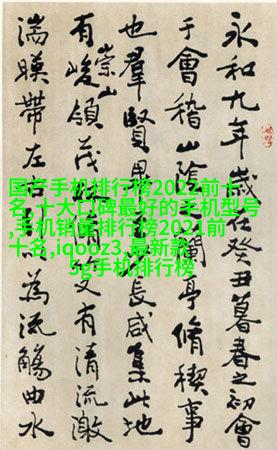 永和九年歲在癸丑暮春之初會
于會稽山陰蘭亭脩稧事
也羣賢畢長咸集此地
有崇山峻領茂又有清流激
湍暎帶左右為流觴曲水
国产手机排行榜2022前十
名,十大口碑最好的手机型号
,手机销量排行榜2021前
十名,iqooz3,最新款
5g手机排行榜